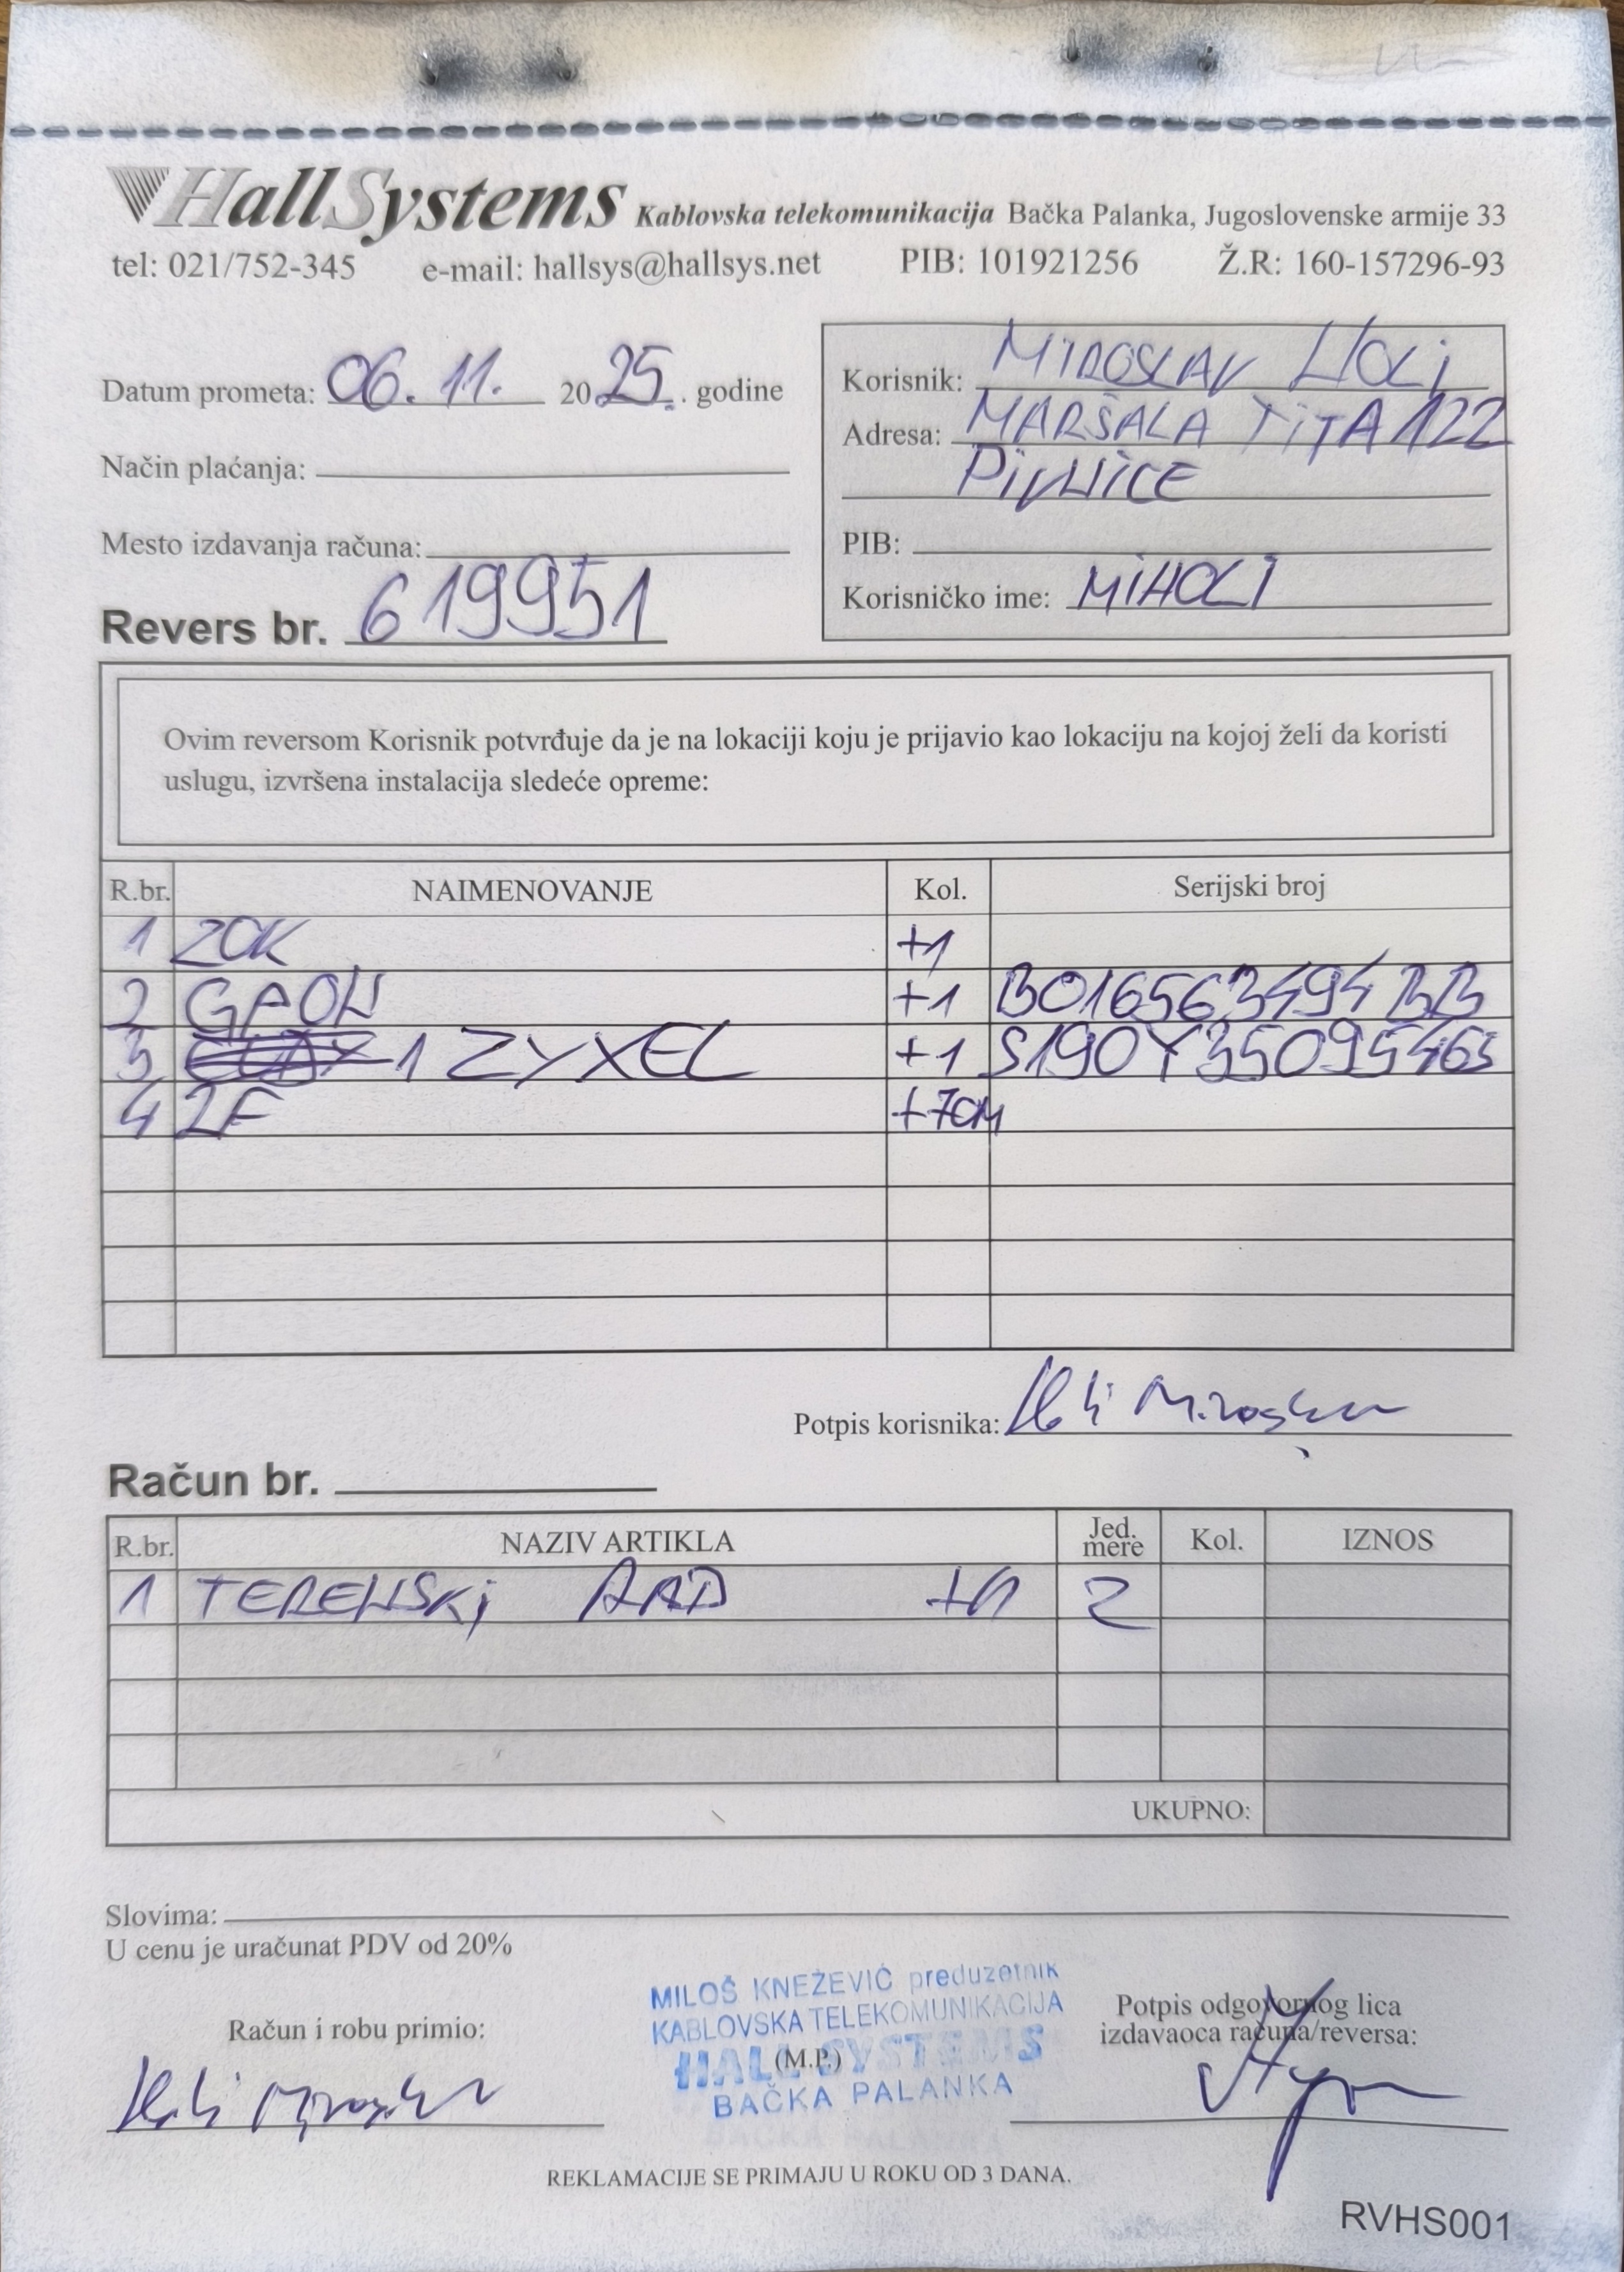 HallSystems Kablovska telekomunikacija Bačka Palanka, Jugoslovenske armije 33
tel: 021/752-345 e-mail: hallsys@hallsys.net PIB: 101921256 Ž.R: 160-157296-93
Datum prometa: 06. 11. 2025. godine
Način plaćanja:
Mesto izdavanja računa:
Revers br. 619951
Korisnik: MIROSLAV HOLi
Adresa: MARŠALA TiTA 122
PiVNiCE
PIB:
Korisničko ime: MiHOLI
Ovim reversom Korisnik potvrđuje da je na lokaciji koju je prijavio kao lokaciju na kojoj želi da koristi
uslugu, izvršena instalacija sledeće opreme:
R.br. NAIMENOVANJE Kol. Serijski broj
1 ZOK +1
2 GPON +1 B016563494BB
3 1 ZYXEL +1 S190Y35095463
4 2F +70M
Potpis korisnika: Holi Miroslav
Račun br.
R.br. NAZIV ARTIKLA Jed. mere Kol. IZNOS
1 TERENSKi RAD +1 2
UKUPNO:
Slovima:
U cenu je uračunat PDV od 20%
Račun i robu primio:
Holi Miroslav
MILOŠ KNEŽEVIĆ preduzetnik
KABLOVSKA TELEKOMUNIKACIJA
HALL SYSTEMS
(M.P.)
BAČKA PALANKA
Potpis odgovornog lica
izdavaoca računa/reversa:
REKLAMACIJE SE PRIMAJU U ROKU OD 3 DANA.
RVHS001